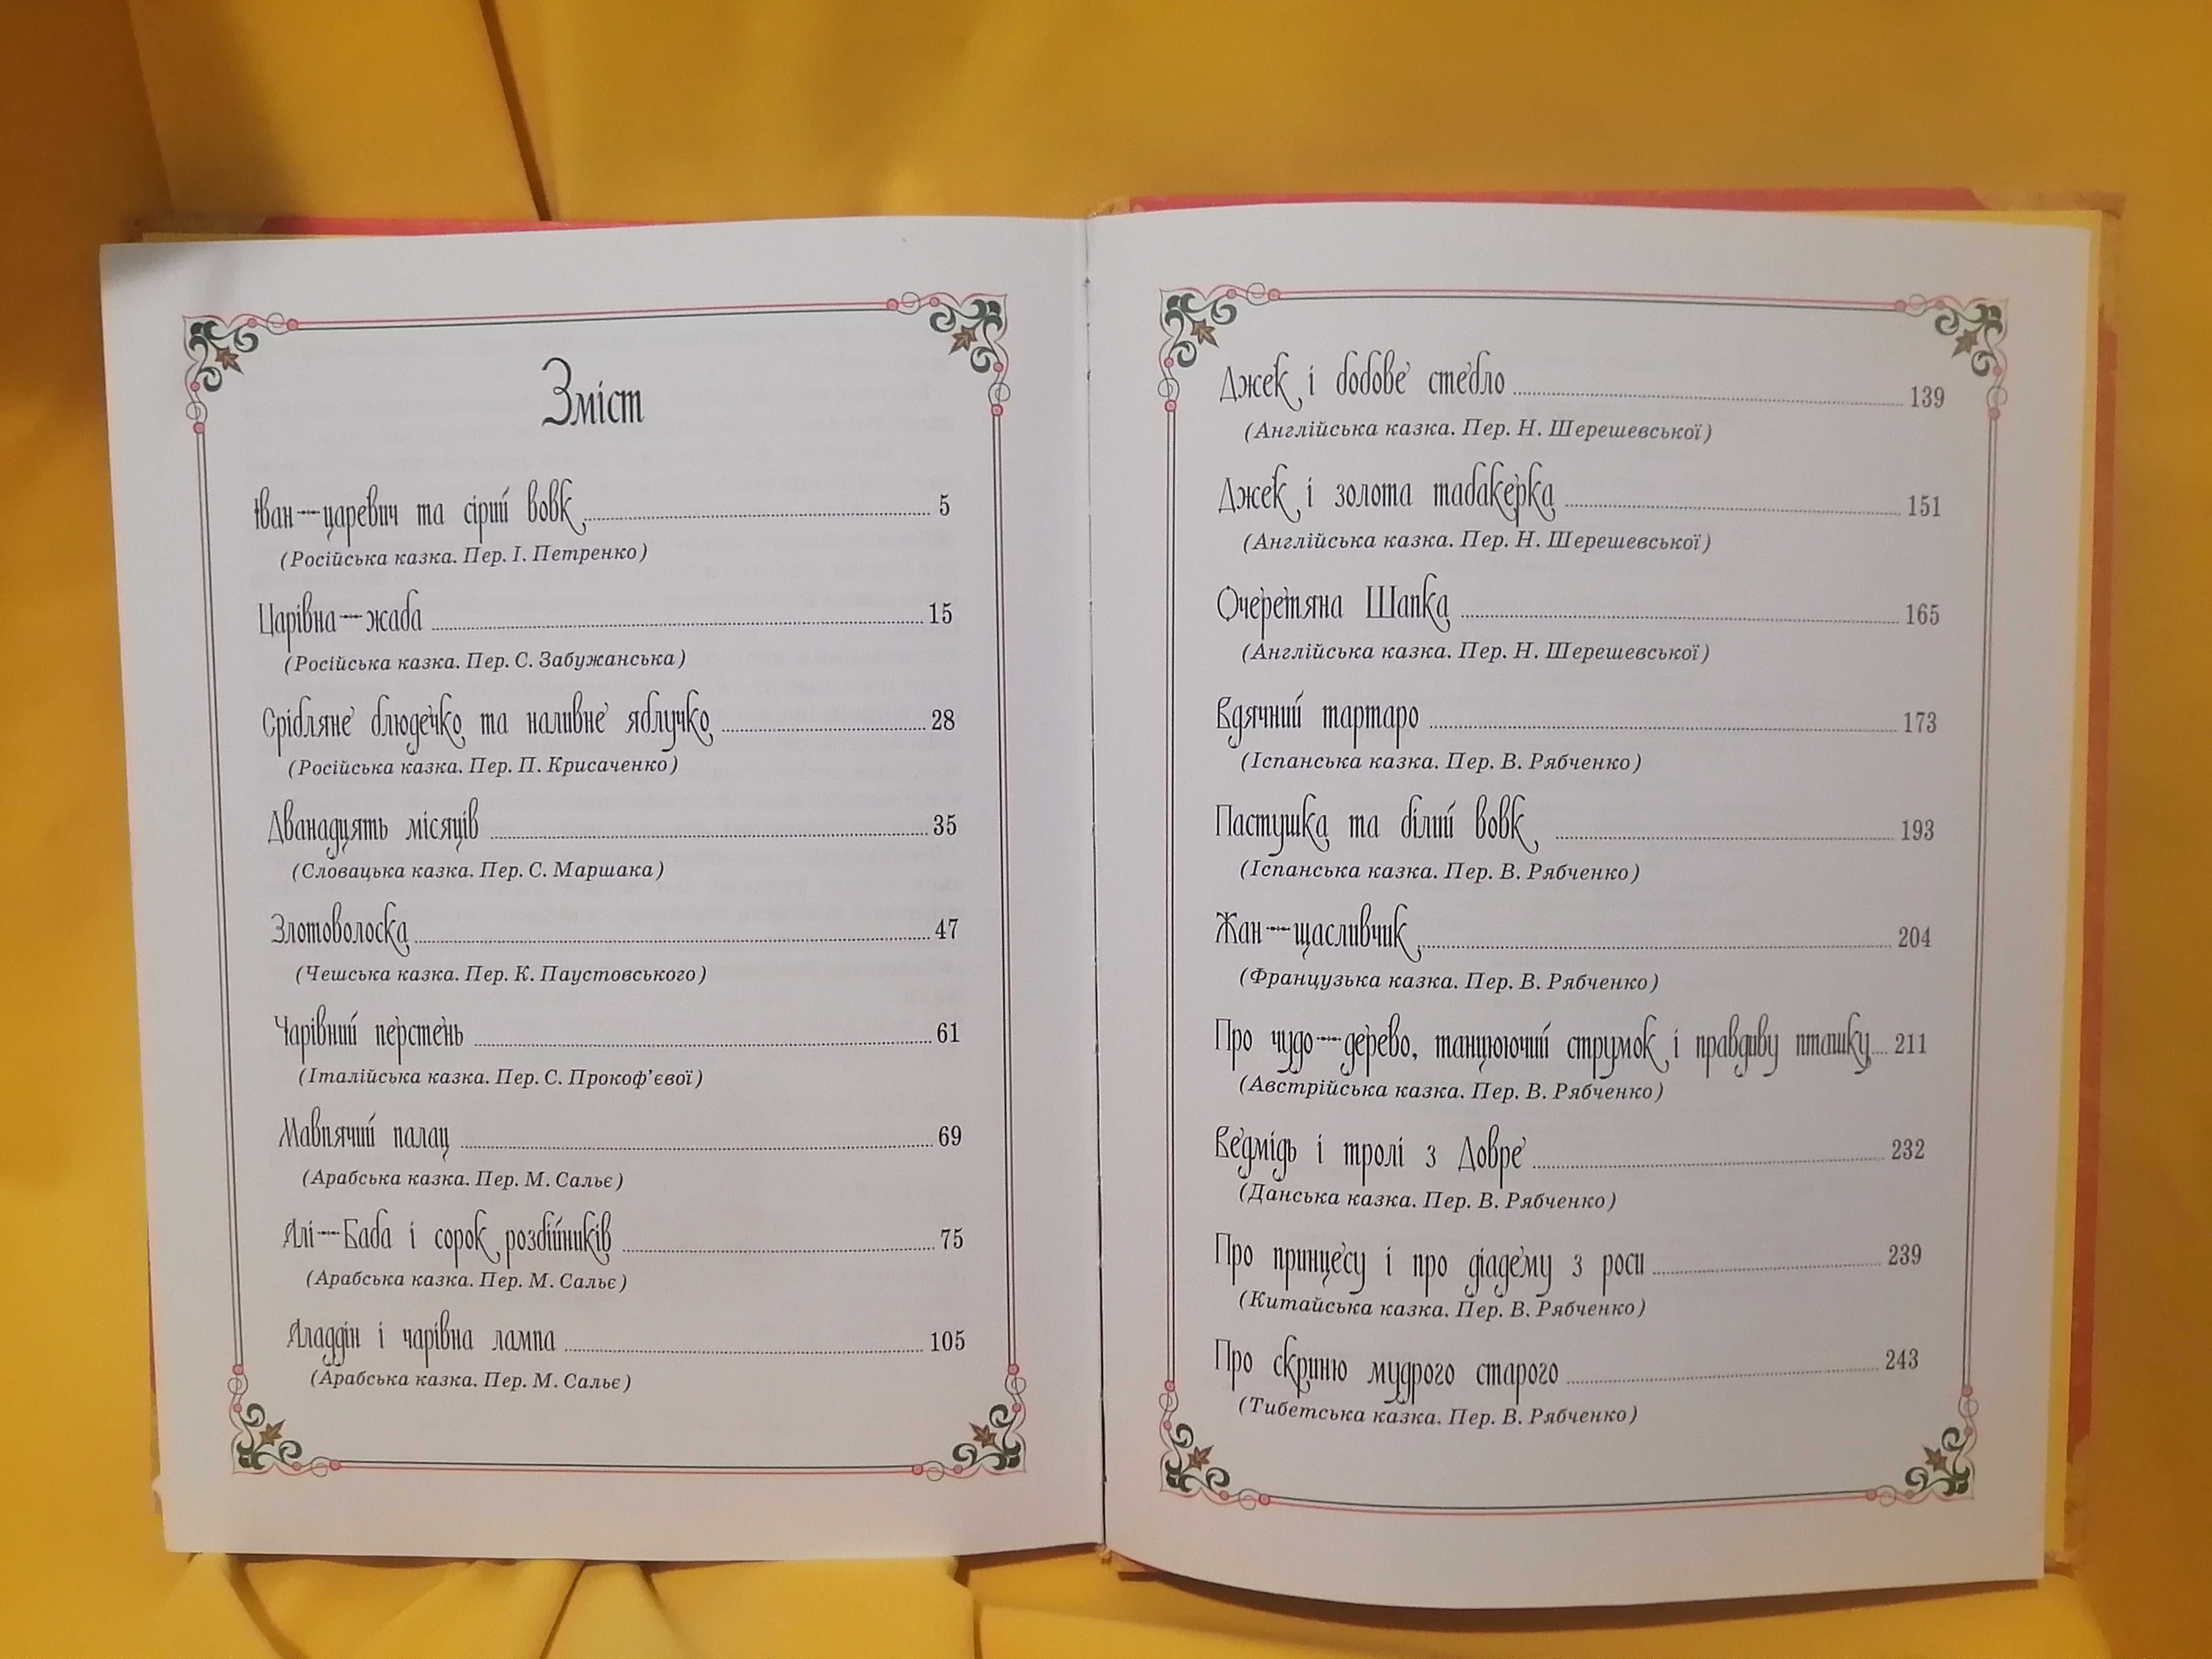 Зміст
Іван-царевич та сірий вовк 5
(Російська казка. Пер. І. Петренко)
Царівна-жаба 15
(Російська казка. Пер. С. Забужанська)
Срібляне блюдечко та наливне яблучко 28
(Російська казка. Пер. П. Крисаченко)
Дванадцять місяців 35
(Словацька казка. Пер. С. Маршака)
Злотоволоска 47
(Чешська казка. Пер. К. Паустовського)
Чарівний перстень 61
(Італійська казка. Пер. С. Прокоф'євої)
Мавпячий палац 69
(Арабська казка. Пер. М. Сальє)
Алі-Баба і сорок розбійників 75
(Арабська казка. Пер. М. Сальє)
Аладдін і чарівна лампа 105
(Арабська казка. Пер. М. Сальє)
Джек і бобове стебло 139
(Англійська казка. Пер. Н. Шерешевської)
Джек і золота табакерка 151
(Англійська казка. Пер. Н. Шерешевської)
Очеретяна Шапка 165
(Англійська казка. Пер. Н. Шерешевської)
Вдячний тартаро 173
(Іспанська казка. Пер. В. Рябченко)
Пастушка та білий вовк 193
(Іспанська казка. Пер. В. Рябченко)
Жан-щасливчик 204
(Французька казка. Пер. В. Рябченко)
Про чудо-дерево, танцюючий струмок і правдиву пташку 211
(Австрійська казка. Пер. В. Рябченко)
Ведмідь і тролі з Довре 232
(Данська казка. Пер. В. Рябченко)
Про принцесу і про діадему з роси 239
(Китайська казка. Пер. В. Рябченко)
Про скриню мудрого старого 243
(Тибетська казка. Пер. В. Рябченко)